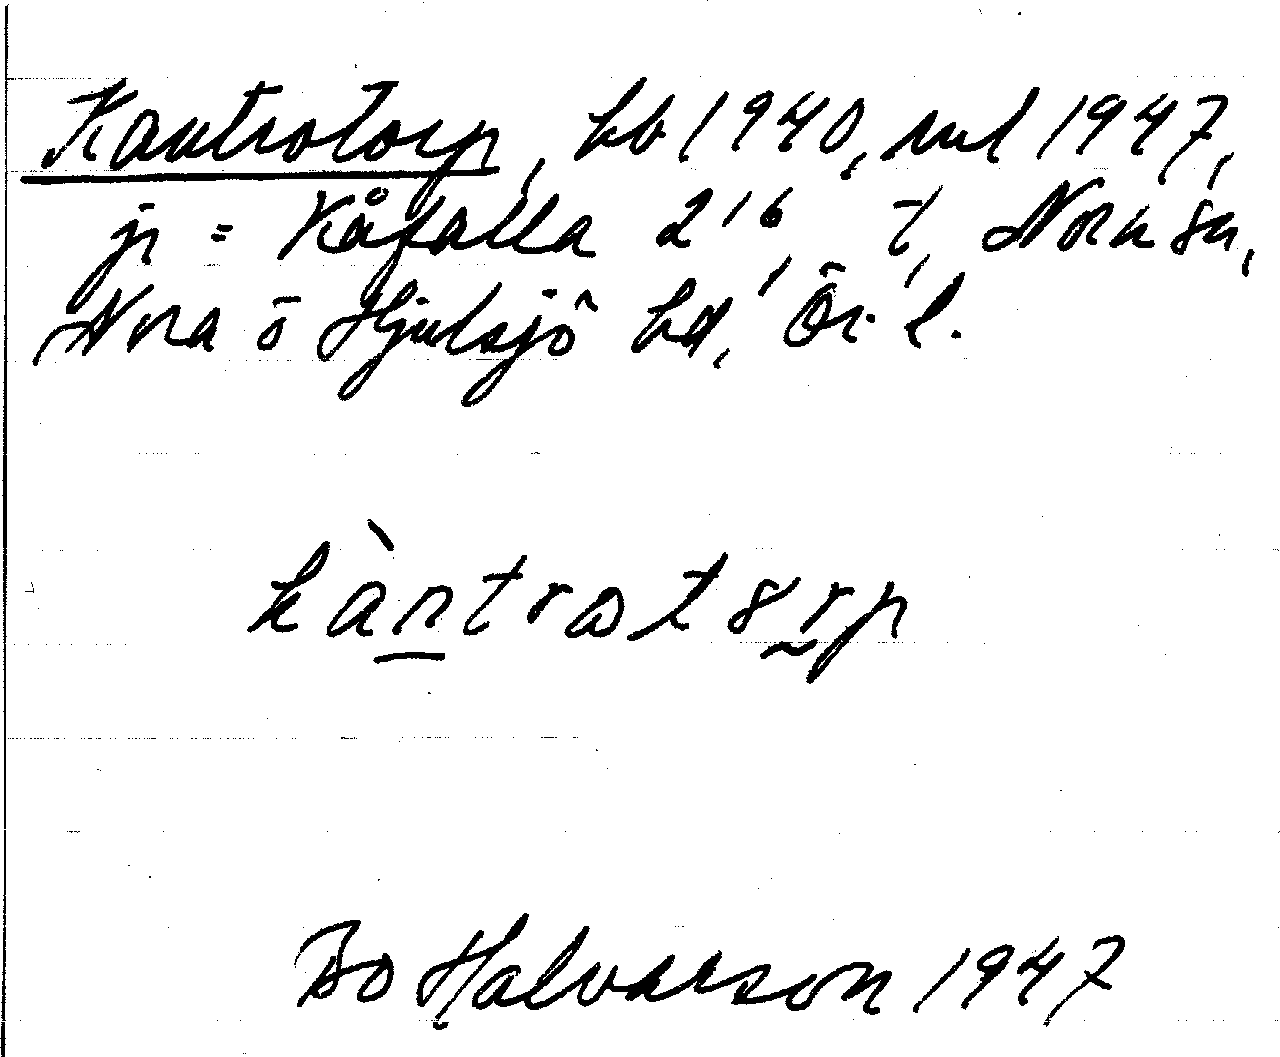 Kantrotorp, kb 1940, uul 1947,
jr = Kåfalla 2¹⁶, t, Nora sn,
Nora o Hjulsjö bd, Ör. l.
kàntrotorp
Bo Halvarson 1947